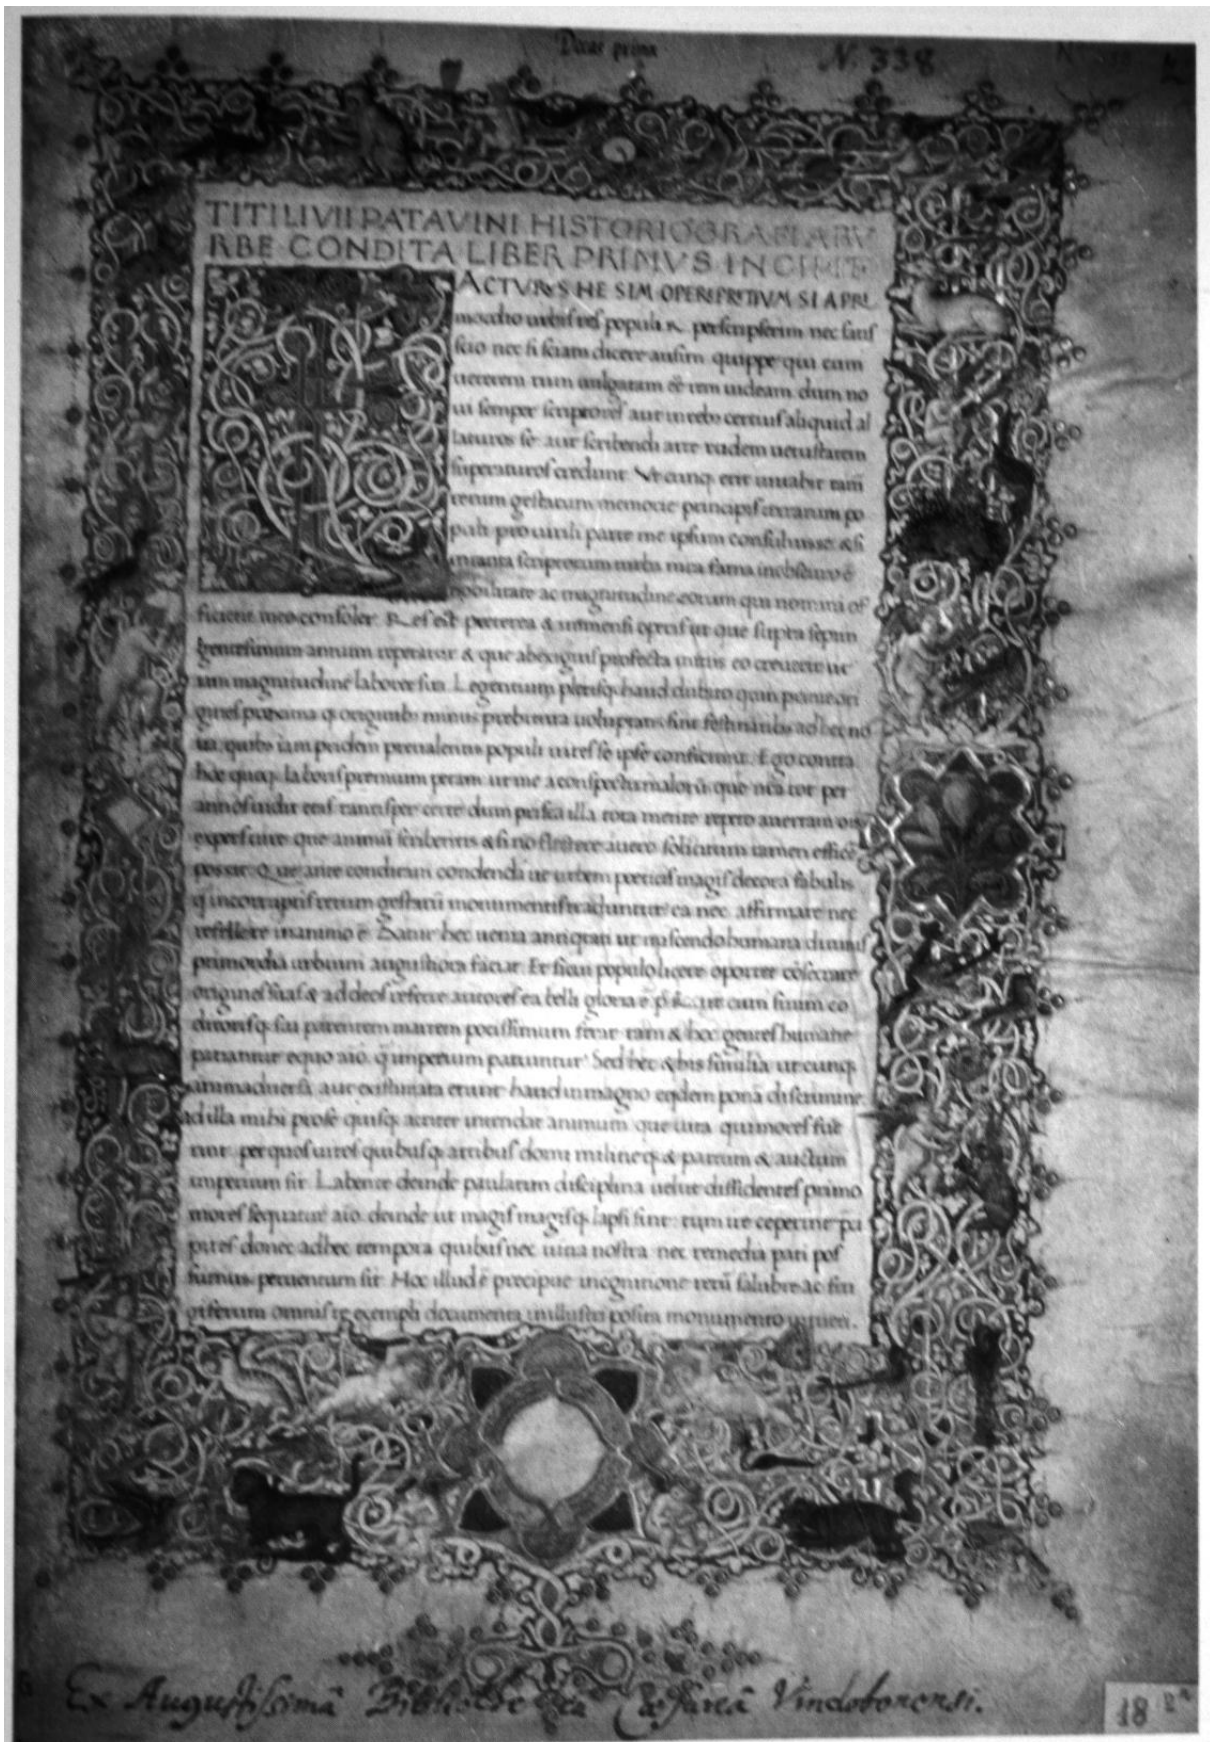 Decas prima
N. 338
TITI LIVII PATAVINI HISTORIOGRAFI AB V
RBE CONDITA LIBER PRIMVS INCIPIT
ACTVRVS NE SIM OPERE PRETIVM SI A PRI
mordio urbis res populi R. perscripserim nec satis
scio nec si sciam dicere ausim quippe qui cum
ueterem tum uulgatam eē rem uideam dum no
ui semper scriptores aut in rebꝰ certius aliquid al
laturos se aut scribendi arte rudem uetustatem
superaturos credunt Vtcunq erit iuuabit tam̄
rerum gestarum memorie principis terrarum po
puli pro uirili parte me ipsum consuluisse & si
in tanta scriptorum turba mea fama in obscuro ē
nobilitate ac magnitudine eorum qui nomini of
ficient meo consoler. Res est preterea & immensi operis ut que supra septin
gentesimum annum repetatur & que ab exiguis profecta initiis eo creuerit ut
iam magnitudine laboret sua. Legentium plerisq haud dubito quin prime ori
gines proxima q originibꝰ minus prebitura uoluptatis sint festinantibꝰ ad hec no
ua quibꝰ iam pridem preualentis populi uires se ipse conficiunt. Ego contra
hoc quoq laboris premium petam ut me a conspectu malorū que nrā tot per
annos uidit etas tantisper certe dum prisca illa tota mente repeto auertam oīs
expers cure que animū scribentis & si nō flectere a uero solicitum tamen efficē
posset. Que ante conditam condendā ue urbem poeticis magis decora fabulis
q incorruptis rerum gestarū monumentis traduntur ea nec affirmare nec
refellere in animo ē. Datur hec uenia antiqtati ut miscendo humana diuinis
primordia urbium augustiora faciat. Et si cui populo licere oportet cōsecrare
origines suas & ad deos referre autores ea belli gloria ē p. R. ut cum suum co
ditorisq sui parentem martem potissimum ferat tam & hoc gentes humane
patiantur equo aīo q̄ imperium patiuntur. Sed hec & his similia utcunq
animaduersa aut existimata erunt haud in magno eqdem ponā discrimine
ad illa mihi prose quisq acriter intendat animum que uita qui mores fue
rint per quos uiros quibusq artibus domi militieq & partum & auctum
imperium sit. Labente deinde paulatim disciplina uelut dissidentes primo
mores sequatur aīo deinde ut magis magisq lapsi sint tum ire ceperint p̄ci
pites donec ad hec tempora quibus nec uitia nostra nec remedia pati pos
sumus peruentum sit. Hoc illud ē precipue in cognitione rerū salubre ac fru
giferum omnis te exempli documenta in illustri posita monumento intueri.
Ex Augustissimâ Bibliotheca Cæsareâ Vindobonensi.
18